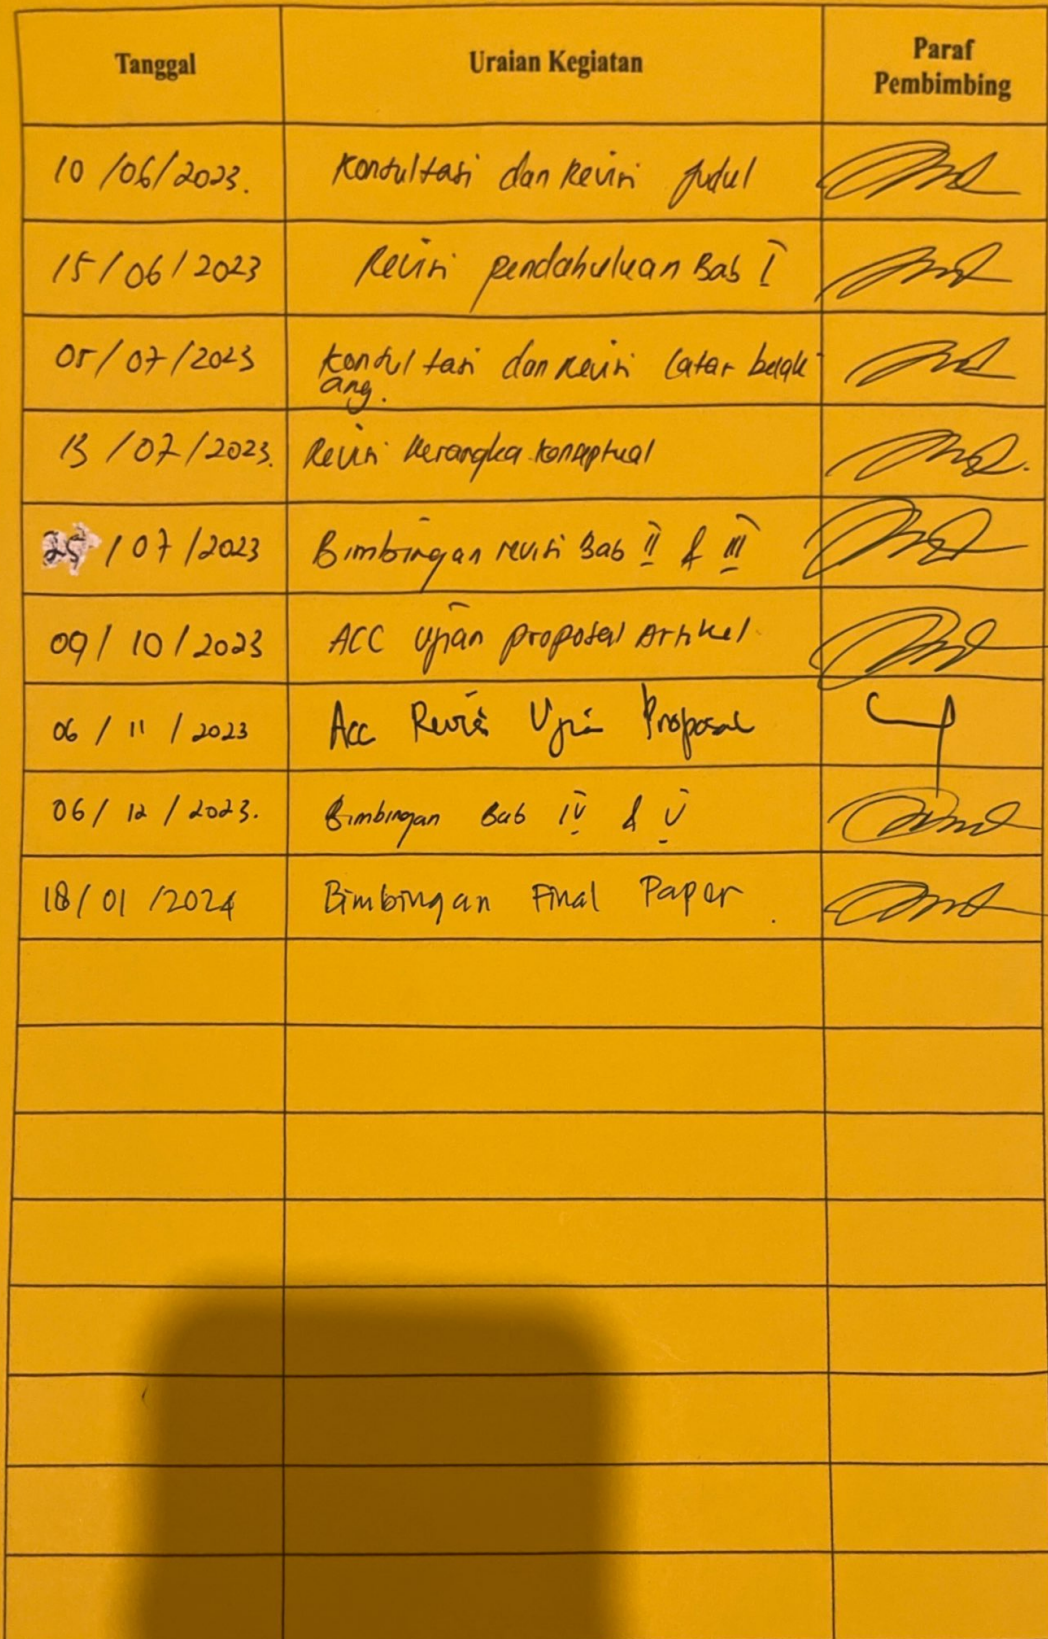 Tanggal Uraian Kegiatan Paraf
Pembimbing
10/06/2023. Konsultasi dan Revisi Judul
15/06/2023 Revisi pendahuluan Bab I
05/07/2023 Konsultasi dan Revisi latar belak
ang.
13/07/2023. Revisi Kerangka Konseptual
25/07/2023 Bimbingan revisi Bab II & III
09/10/2023 ACC Ujian proposal Artikel.
06/11/2023 Acc Revisi Ujian Proposal
06/12/2023. Bimbingan Bab IV & V
18/01/2024 Bimbingan Final Paper.